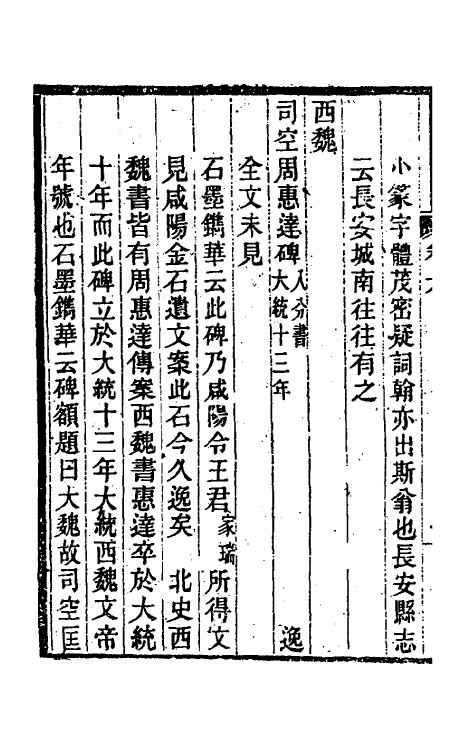 小篆字體茂密疑詞翰亦出斯翁也長安縣志
云長安城南往往有之
西魏
司空周惠達碑八分書大統十三年 逸
全文未見
石墨鐫華云此碑乃咸陽令王君家瑞所得文
見咸陽金石遺文案此石今久逸矣 北史西
魏書皆有周惠達傳案西魏書惠達卒於大統
十年而此碑立於大統十三年大統西魏文帝
年號也石墨鐫華云碑額題曰大魏故司空匡